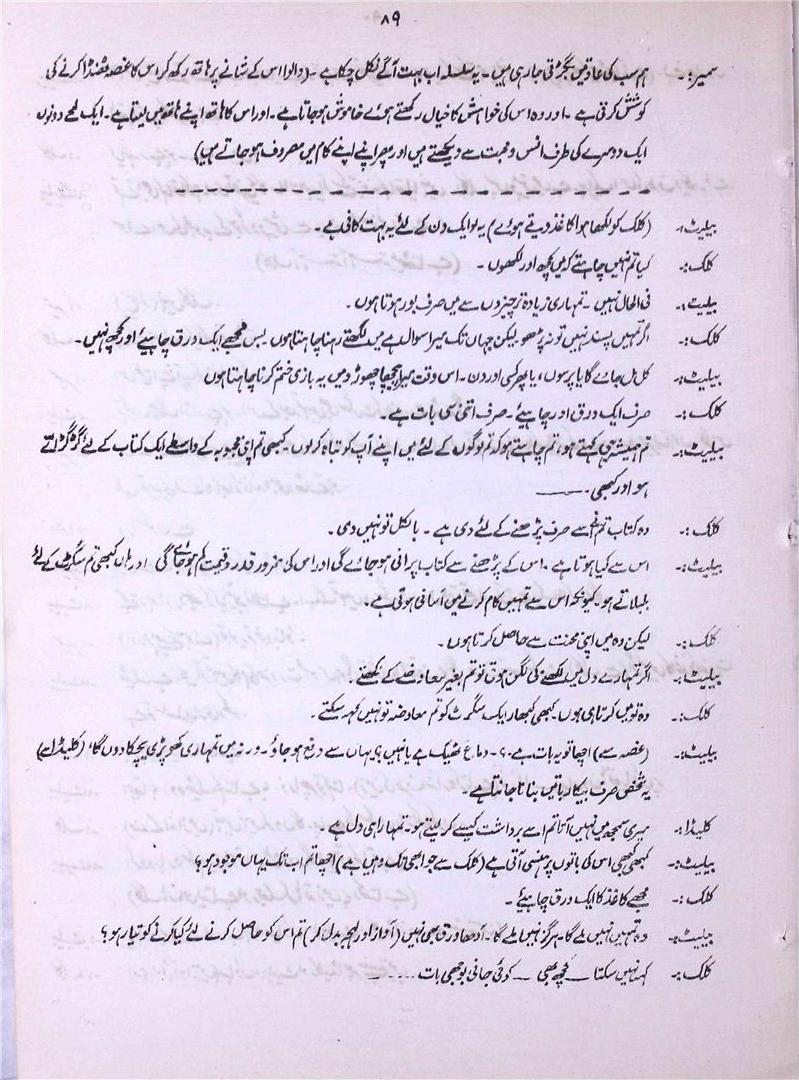 ۸۹
سمیر:۔ ہم سب کی عادتیں بگڑتی جا رہی ہیں۔ یہ سلسلہ اب بہت آگے نکل چکا ہے۔ (والوا اس کے شانے پر ہاتھ رکھ کر اس کا غصہ ٹھنڈا کرنے کی
کوشش کرتی ہے۔ اور وہ اس کی خواہش کا خیال رکھتے ہوئے خاموش ہو جاتا ہے۔ اور اس کا ہاتھ اپنے ہاتھ میں لیتا ہے۔ ایک لمحے دونوں
ایک دوسرے کی طرف انس و محبت سے دیکھتے ہیں اور پھر اپنے اپنے کام میں مصروف ہو جاتے ہیں)
بیلیٹ:۔ (کلک کو لکھا ہوا کاغذ دیتے ہوئے) یہ لو ایک دن کے لئے یہ بہت کافی ہے۔
کلک:۔ کیا تم نہیں چاہتے کہ میں کچھ اور لکھوں۔
بیلیٹ:۔ فی الحال نہیں۔ تمہاری زیادہ تر چیزوں سے میں صرف بور ہوتا ہوں۔
کلک:۔ اگر تمہیں پسند نہیں تو نہ پڑھو لیکن جہاں تک میرا سوال ہے میں لکھتے رہنا چاہتا ہوں بس مجھے ایک ورق چاہیئے اور کچھ نہیں۔
بیلیٹ:۔ کل مل جائے گا یا پرسوں، یا پھر کسی اور دن۔ اس وقت میرا پیچھا چھوڑ دو میں یہ بازی ختم کرنا چاہتا ہوں
کلک:۔ صرف ایک ورق اور چاہیئے۔ صرف اتنی سی بات ہے۔
بیلیٹ:۔ تم ہمیشہ یہی کہتے ہو، تم چاہتے ہو کہ تم لوگوں کے لئے میں اپنے آپ کو تباہ کر لوں۔ کبھی تم اپنی محبوبہ کے واسطے ایک کتاب کے لئے گڑگڑاتے
ہو اور کبھی۔ ———
کلک:۔ وہ کتاب تم نے اسے صرف پڑھنے کے لئے دی ہے۔ بالکل تو نہیں دی۔
بیلیٹ:۔ اس سے کیا ہوتا ہے۔ اس کے پڑھنے سے کتاب پرانی ہو جائے گی اور اس کی ضرور قدر و قیمت کم ہو جائے گی اور ہاں کبھی تم سگرٹ کے لئے
بلبلاتے ہو۔ کیونکہ اس سے تمہیں کام کرنے میں آسانی ہوتی ہے۔
کلک:۔ لیکن وہ میں اپنی محنت سے حاصل کرتا ہوں۔
بیلیٹ:۔ اگر تمہارے دل میں لکھنے کی لگن ہوتی تو تم بغیر معاوضے کے لکھتے۔
کلک:۔ وہ تو میں کرتا ہی ہوں۔ کبھی کبھار ایک سگرٹ کو تم معاوضہ تو نہیں کہہ سکتے۔
بیلیٹ:۔ (غصہ سے) اچھا تو یہ بات ہے۔؟۔ دماغ ٹھیک ہے یا نہیں؟ یہاں سے دفع ہو جاؤ۔ ورنہ میں تمہاری کھوپڑی پچکا دوں گا' (کلیڈا سے)
یہ شخص صرف بیکار باتیں بنانا جانتا ہے۔
کلیڈا:۔ میری سمجھ میں نہیں آتا تم اسے برداشت کیسے کر لیتے ہو۔ تمہارا ہی دل ہے۔
بیلیٹ:۔ کبھی کبھی اس کی باتوں پر ہنسی آتی ہے (کلک سے جو ابھی تک وہیں ہے) اچھا تم اب تک یہاں موجود ہو؟
کلک:۔ مجھے کاغذ کا ایک ورق چاہیئے۔
بیلیٹ:۔ وہ تمہیں نہیں ملے گا۔ ہرگز نہیں ملے گا۔ آدھا ورق بھی نہیں (آواز اور لہجہ بدل کر) تم اس کو حاصل کرنے لئے کیا کرنے کو تیار ہو؟
کلک:۔ کہنا نہیں سکتا — کچھ بھی — کوئی جانی بوجھی بات ......